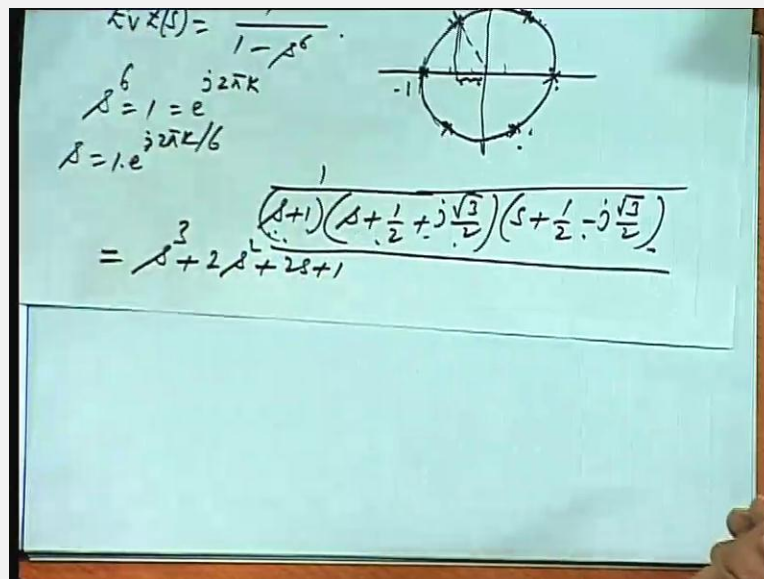 Ev Z(s) = 1 / (1 - s^6).
s^6 = 1 = e^{j2πk}
s = 1.e^{j2πk/6}
-1
1 / (s+1)(s + 1/2 + j√3/2)(s + 1/2 - j√3/2)
= s^3 + 2s^2 + 2s + 1